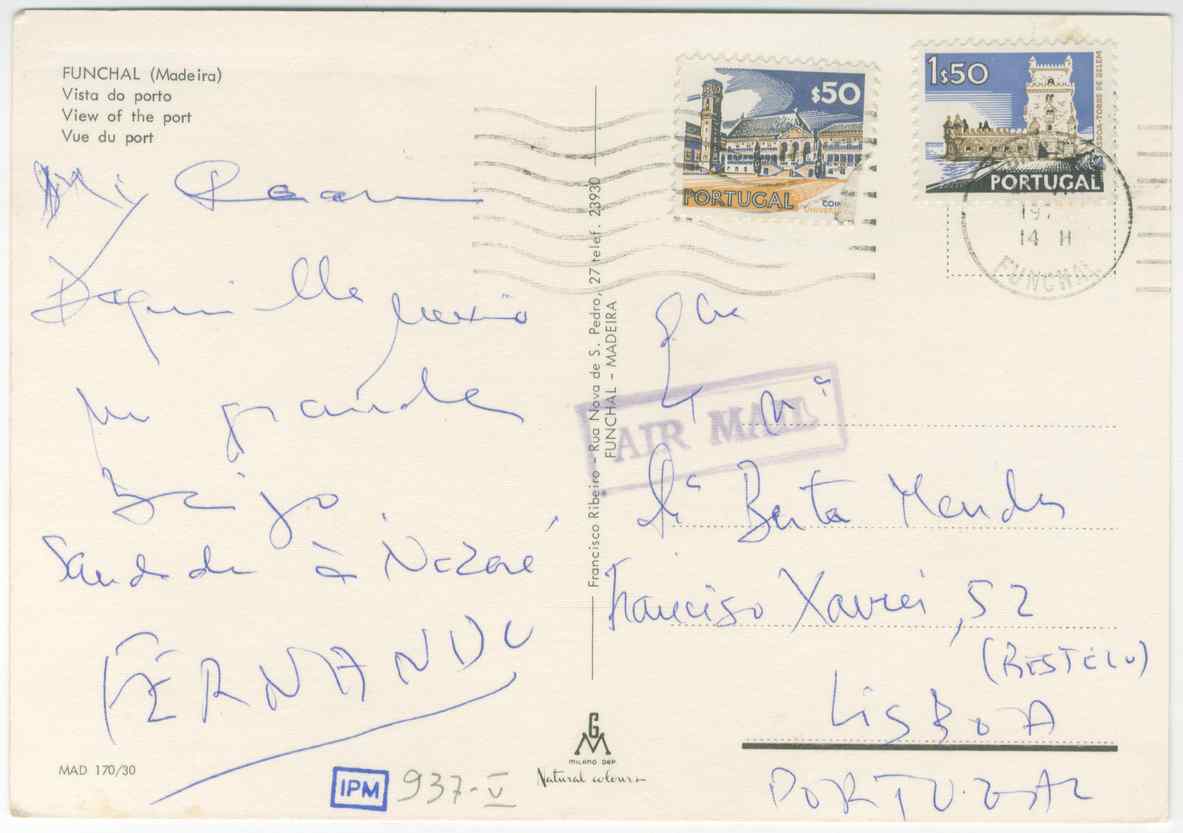 FUNCHAL (Madeira)
Vista do porto
View of the port
Vue du port
Daqui lhe
um grande
Beijo
Saudades à Nazaré
FERNANDO
MAD 170/30
IPM 937-V
Francisco Ribeiro - Rua Nova de S. Pedro, 27 telef. 23930
FUNCHAL - MADEIRA
G M
MILANO DEP.
Natural colour
$50
PORTUGAL
1$50
PORTUGAL
197
14 H
FUNCHAL
AIR MAIL
Mª
Berta Mendes
Francisco Xavier, 52
(RESTELO)
LISBOA
PORTUGAL